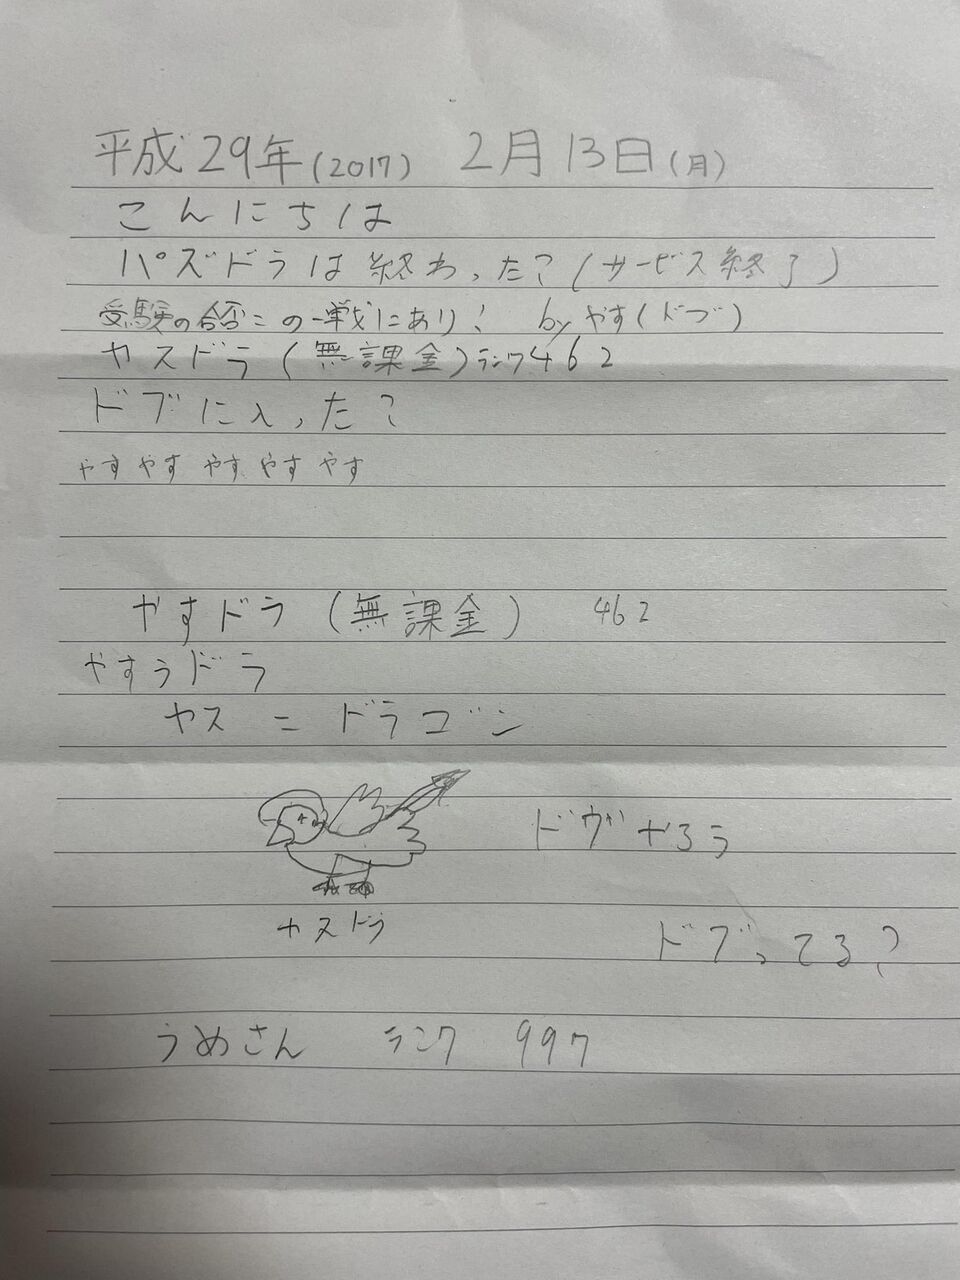 平成29年(2017) 2月13日(月)
こんにちは
パズドラは終わった?(サービス終了)
受験の合否この一戦にあり! byやす(ドブ)
ヤスドラ(無課金)ランク462
ドブに入った?
やす やす やす やす やす
やすドラ(無課金) 462
やすぅドラ
ヤス=ドラゴン
ドヴやろう
ヤスドラ
ドブってる?
うめさん ランク 997